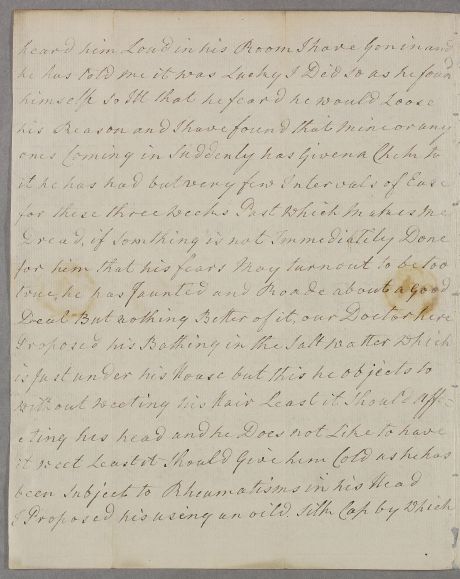 heard him Loud in his Room I have Gon in and
he has told me it was Lucky I Did so as he foun'd
himself so Ill that he fear'd he would Loose
his Reason and I have found that mine or any
ones Coming in Suddenly has Given a Check to
it he has had but very few Intervals of Ease
for these three weeks Past Which makes me
Dread, if somthing is not Immediatily Done
for him that his fears May turn out to be too
true, he has Jaunted and Roade about a Good
Deal But nothing Better of it, our Doctor here
Proposed his Bathing in the Salt watter which
is Just under his House but this he objects to
Without weeting his Hair Least it Should aff-
ecting his head and he Does not Like to have
it weet Least it Should Give him Cold as he has
been Subject to Rheumatisms in his Head
I Proposed his using an oild Silk Cap by Which